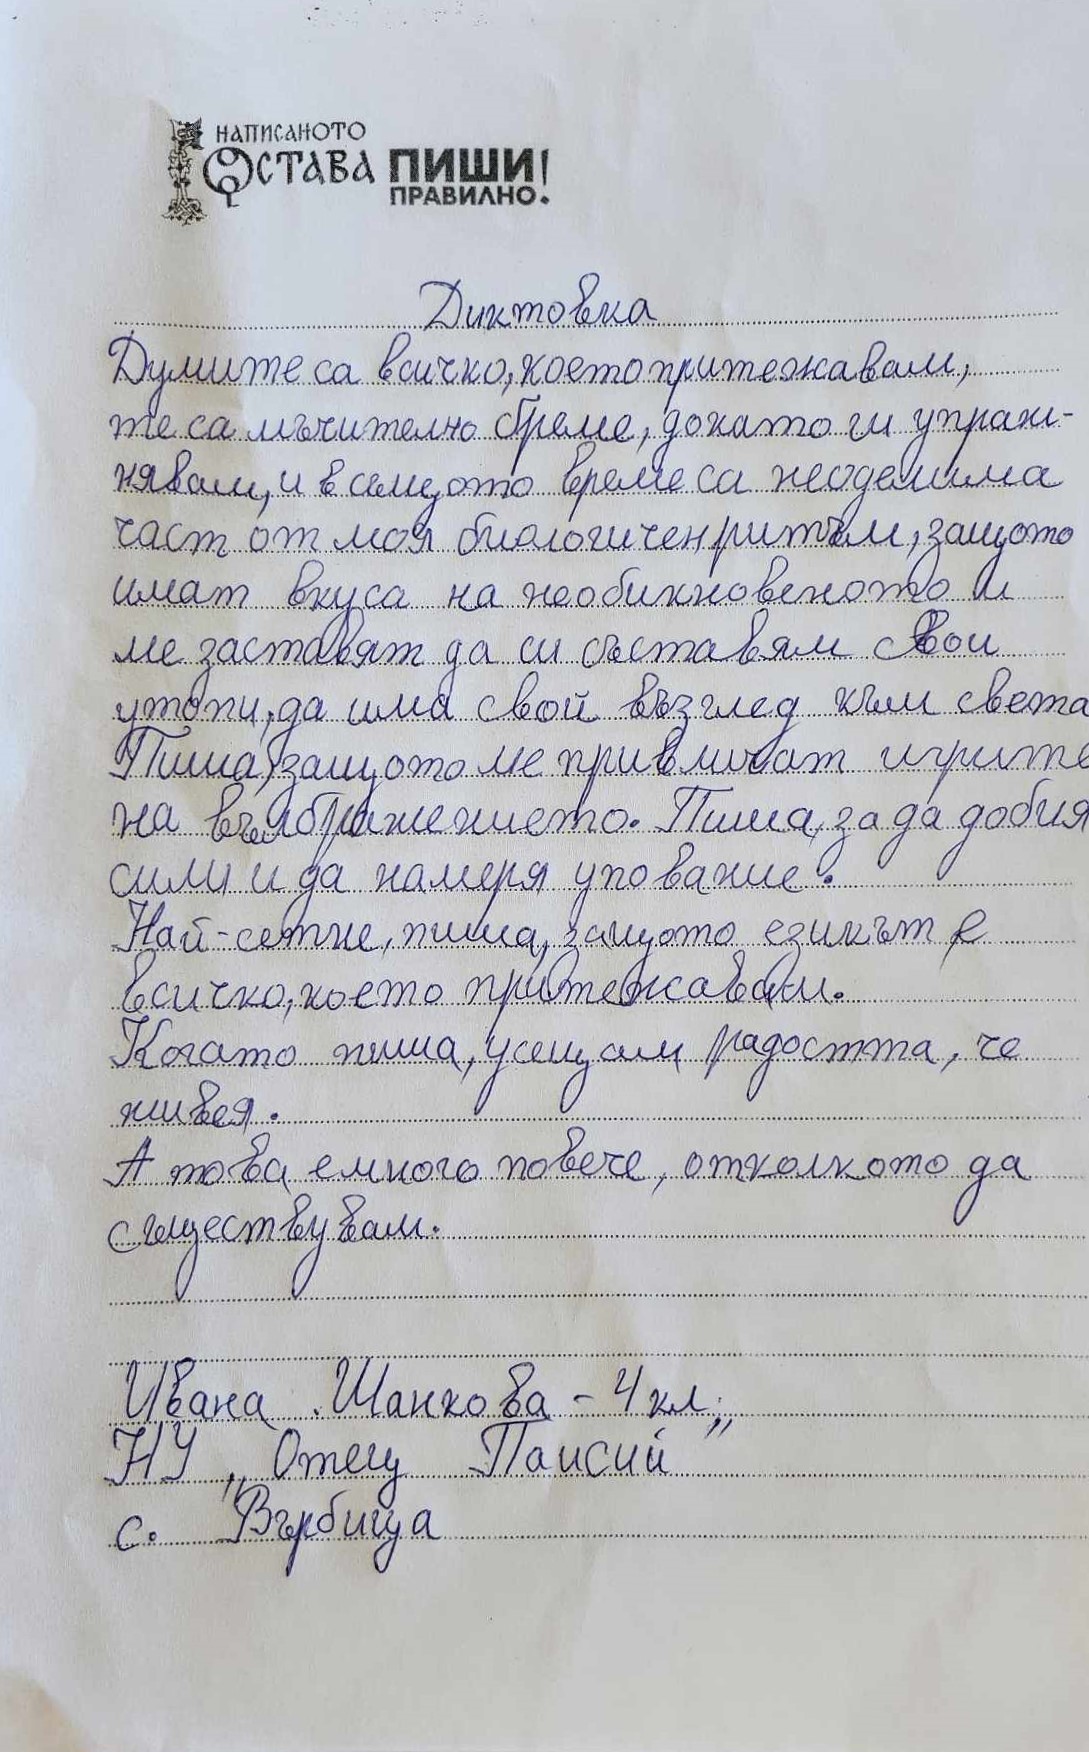 НАПИСАНОТО
ОСТАВА ПИШИ!
ПРАВИЛНО.
Диктовка
Думите са всичко, което притежавам,
те са мъчително бреме, докато ги упраж-
нявам, и в същото време са неоделима
част от моя биологичен ритъм, защото
имат вкуса на необикновеното и
ме заставят да си съставям свои
утопи, да има свой възглед към света
Пиша, защото ме привличат игрите
на въображението. Пиша, за да добия
сили и да намеря упование.
Най-сетне, пиша, защото езикът е
всичко, което притежавам.
Когато пиша, усещам радостта, че
живея.
А това е много повече, отколкото да
съществувам.
Ивана Шанкова - 4 кл.
НУ „Отец Паисий"
с. Върбица